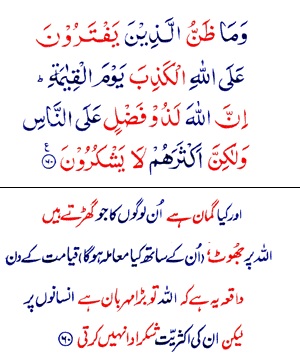 وَمَا ظَنُّ الَّذِيْنَ يَفْتَرُوْنَ
عَلَى اللّٰهِ الْكَذِبَ يَوْمَ الْقِيٰمَةِ ؕ
اِنَّ اللّٰهَ لَذُوْ فَضْلٍ عَلَى النَّاسِ
وَلٰكِنَّ اَكْثَرَهُمْ لَا يَشْكُرُوْنَ ﴿۶۰﴾ ع
اور کیا گمان ہے اُن لوگوں کا جو گھڑتے ہیں
اللہ پر جھوٹ (اُن کے ساتھ کیا معاملہ ہوگا) قیامت کے دن
واقعہ یہ ہے کہ اللہ تو بڑا مہربان ہے انسانوں پر
لیکن ان کی اکثریّت شکر ادا نہیں کرتی ﴿۶۰﴾